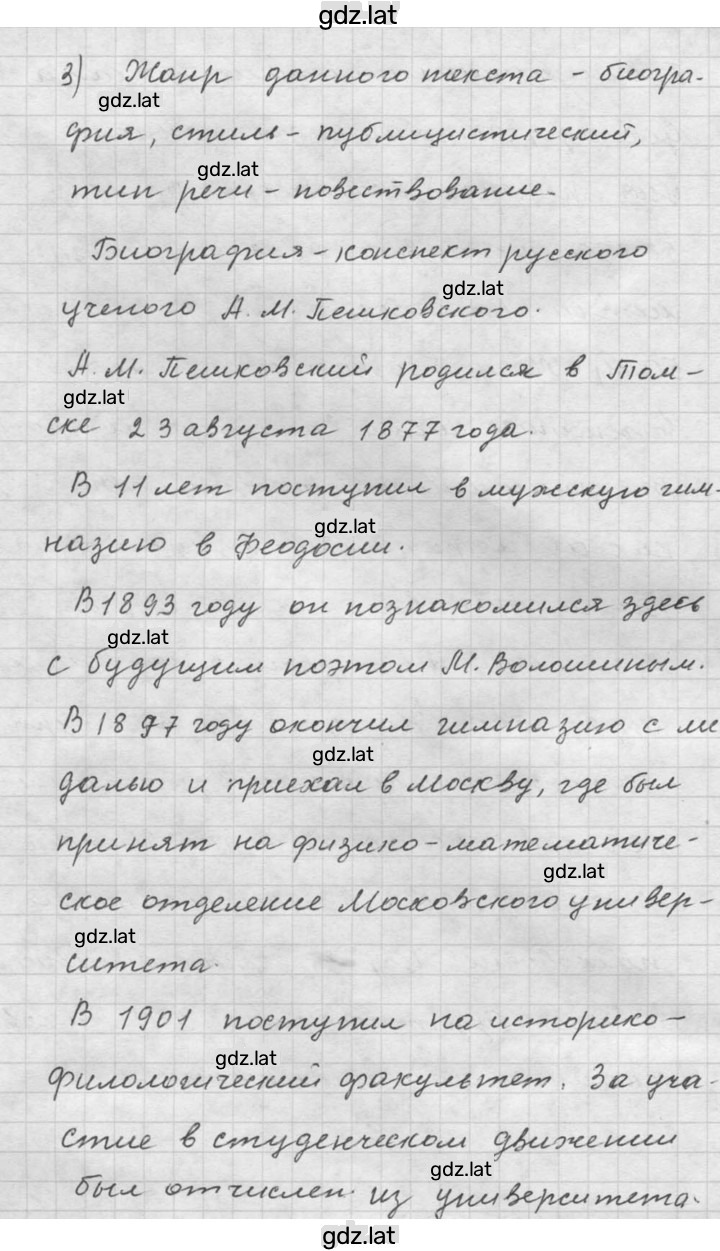 gdz.lat
3) Жанр данного текста - биогра-
gdz.lat
фия, стиль - публицистический,
gdz.lat
тип речи - повествование.
Биография - конспект русского
gdz.lat
ученого А. М. Пешковского.
А. М. Пешковский родился в Том-
gdz.lat
ске 23 августа 1877 года.
В 11 лет поступил в мужскую гим-
gdz.lat
назию в Феодосии.
В 1893 году он познакомился здесь
gdz.lat
с будущим поэтом М. Волошиным.
В 1897 году окончил гимназию с ме
gdz.lat
далью и приехал в Москву, где был
принят на физико-математиче-
gdz.lat
ское отделение Московского универ-
gdz.lat
ситета.
В 1901 поступил на историко-
gdz.lat
филологический факультет. За уча-
стие в студенческом движении
gdz.lat
был отчислен из университета.
gdz.lat